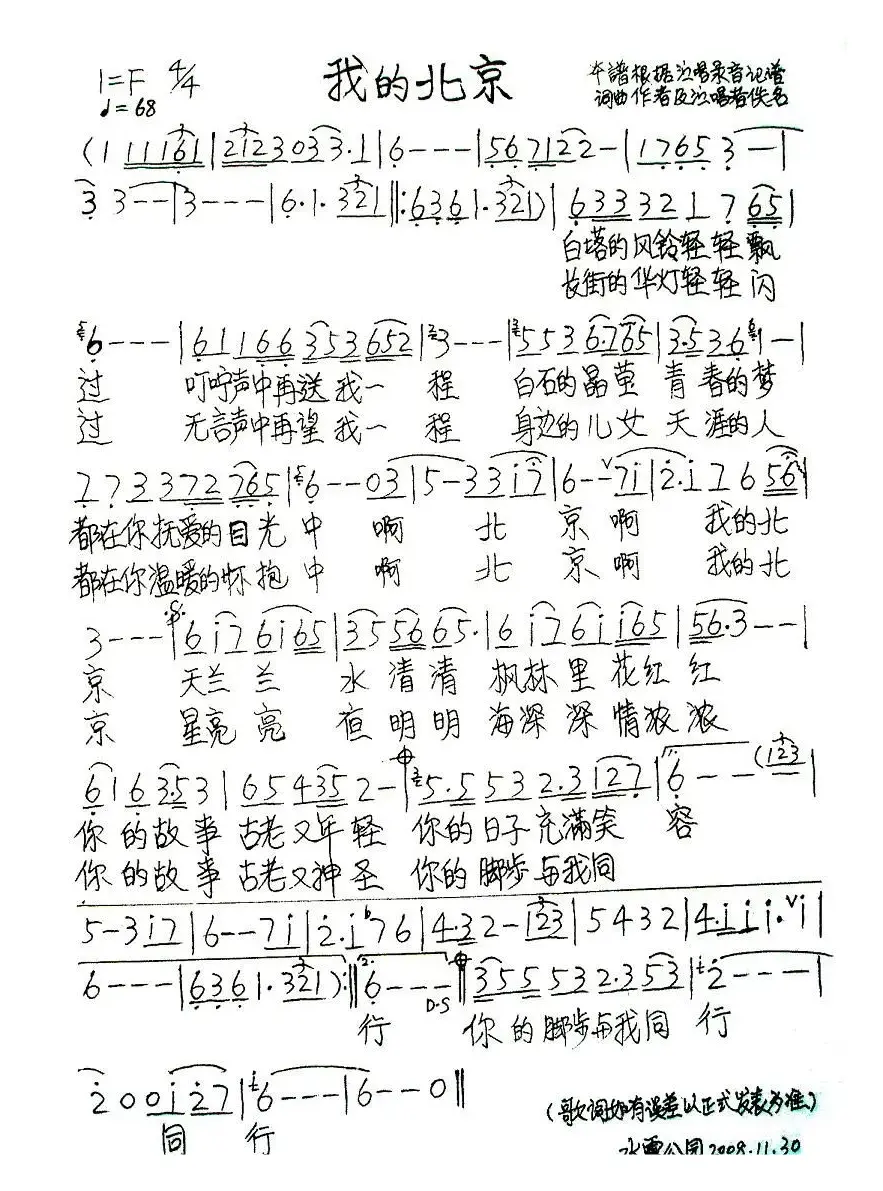 我的北京
1=F 4/4
♩=68
本譜根据演唱录音记谱
词曲作者及演唱者佚名
(1 1 1 1 6 1 | 2 1 2 3 0 3 3·1 | 6 - - - | 5 6 7 1 2 2 - | 1 7 6 5 3 - |
3 3 - - | 3 - - - | 6·1·3 2 1 ‖: 6 3 6 1·3 2 1) | 6 3 3 3 2 1 7 6 5 |
白塔的风铃轻轻飘
长街的华灯轻轻闪
6 - - - | 6 1 1 6 6 3 5 3 6 5 2 | 3 - - - | 5 5 3 6·7 6 5 | 3·5 3 6 1 - |
过 叮咛声中再送我一 程 白石的晶莹 青春的梦
过 无言声中再望我一 程 身边的儿女 天涯的人
7 7 3 3 3 7 2 7 6 5 | 6 - - 0 3 | 5 - 3 3 i 7 | 6 - - ∨ 7 i | 2·i 7 6 5 6 |
都在你抚爱的目光中 啊 北 京 啊 我的北
都在你温暖的怀抱中 啊 北 京 啊 我的北
3 - - - | 6 i 7 6 i 6 5 | 3 5 5 6 6 5· | 6 i 7 6 i i 6 5 | 5 6·3 - - |
京 天兰兰 水清清 枫林里花红红
京 星亮亮 夜明明 海深深情浓浓
6 1 6 3·5 3 | 6 5 4 3 5 2 - | 5·5 5 3 2·3 1 2 7 | 6 - - (1 2 3 |
你的故事古老又年轻 你的日子充满笑 容
你的故事古老又神圣 你的脚步与我同
5 - 3 i 7 | 6 - - 7 i | 2·i b7 6 | 4·3 2 - i 2 3 | 5 4 3 2 | 4·i i i·∨ i |
6 - - - | 6 3 6 1·3 2 1) :‖ 2. 6 - - - D·S ‖ 3 5 5 5 3 2·3 5 3 | 2 - - - |
行 你的脚步与我同行
2 0 0 i 2 7 | 6 - - - | 6 - - 0 ‖
同 行
(歌词如有误差以正式发表为准)
2008.11.30